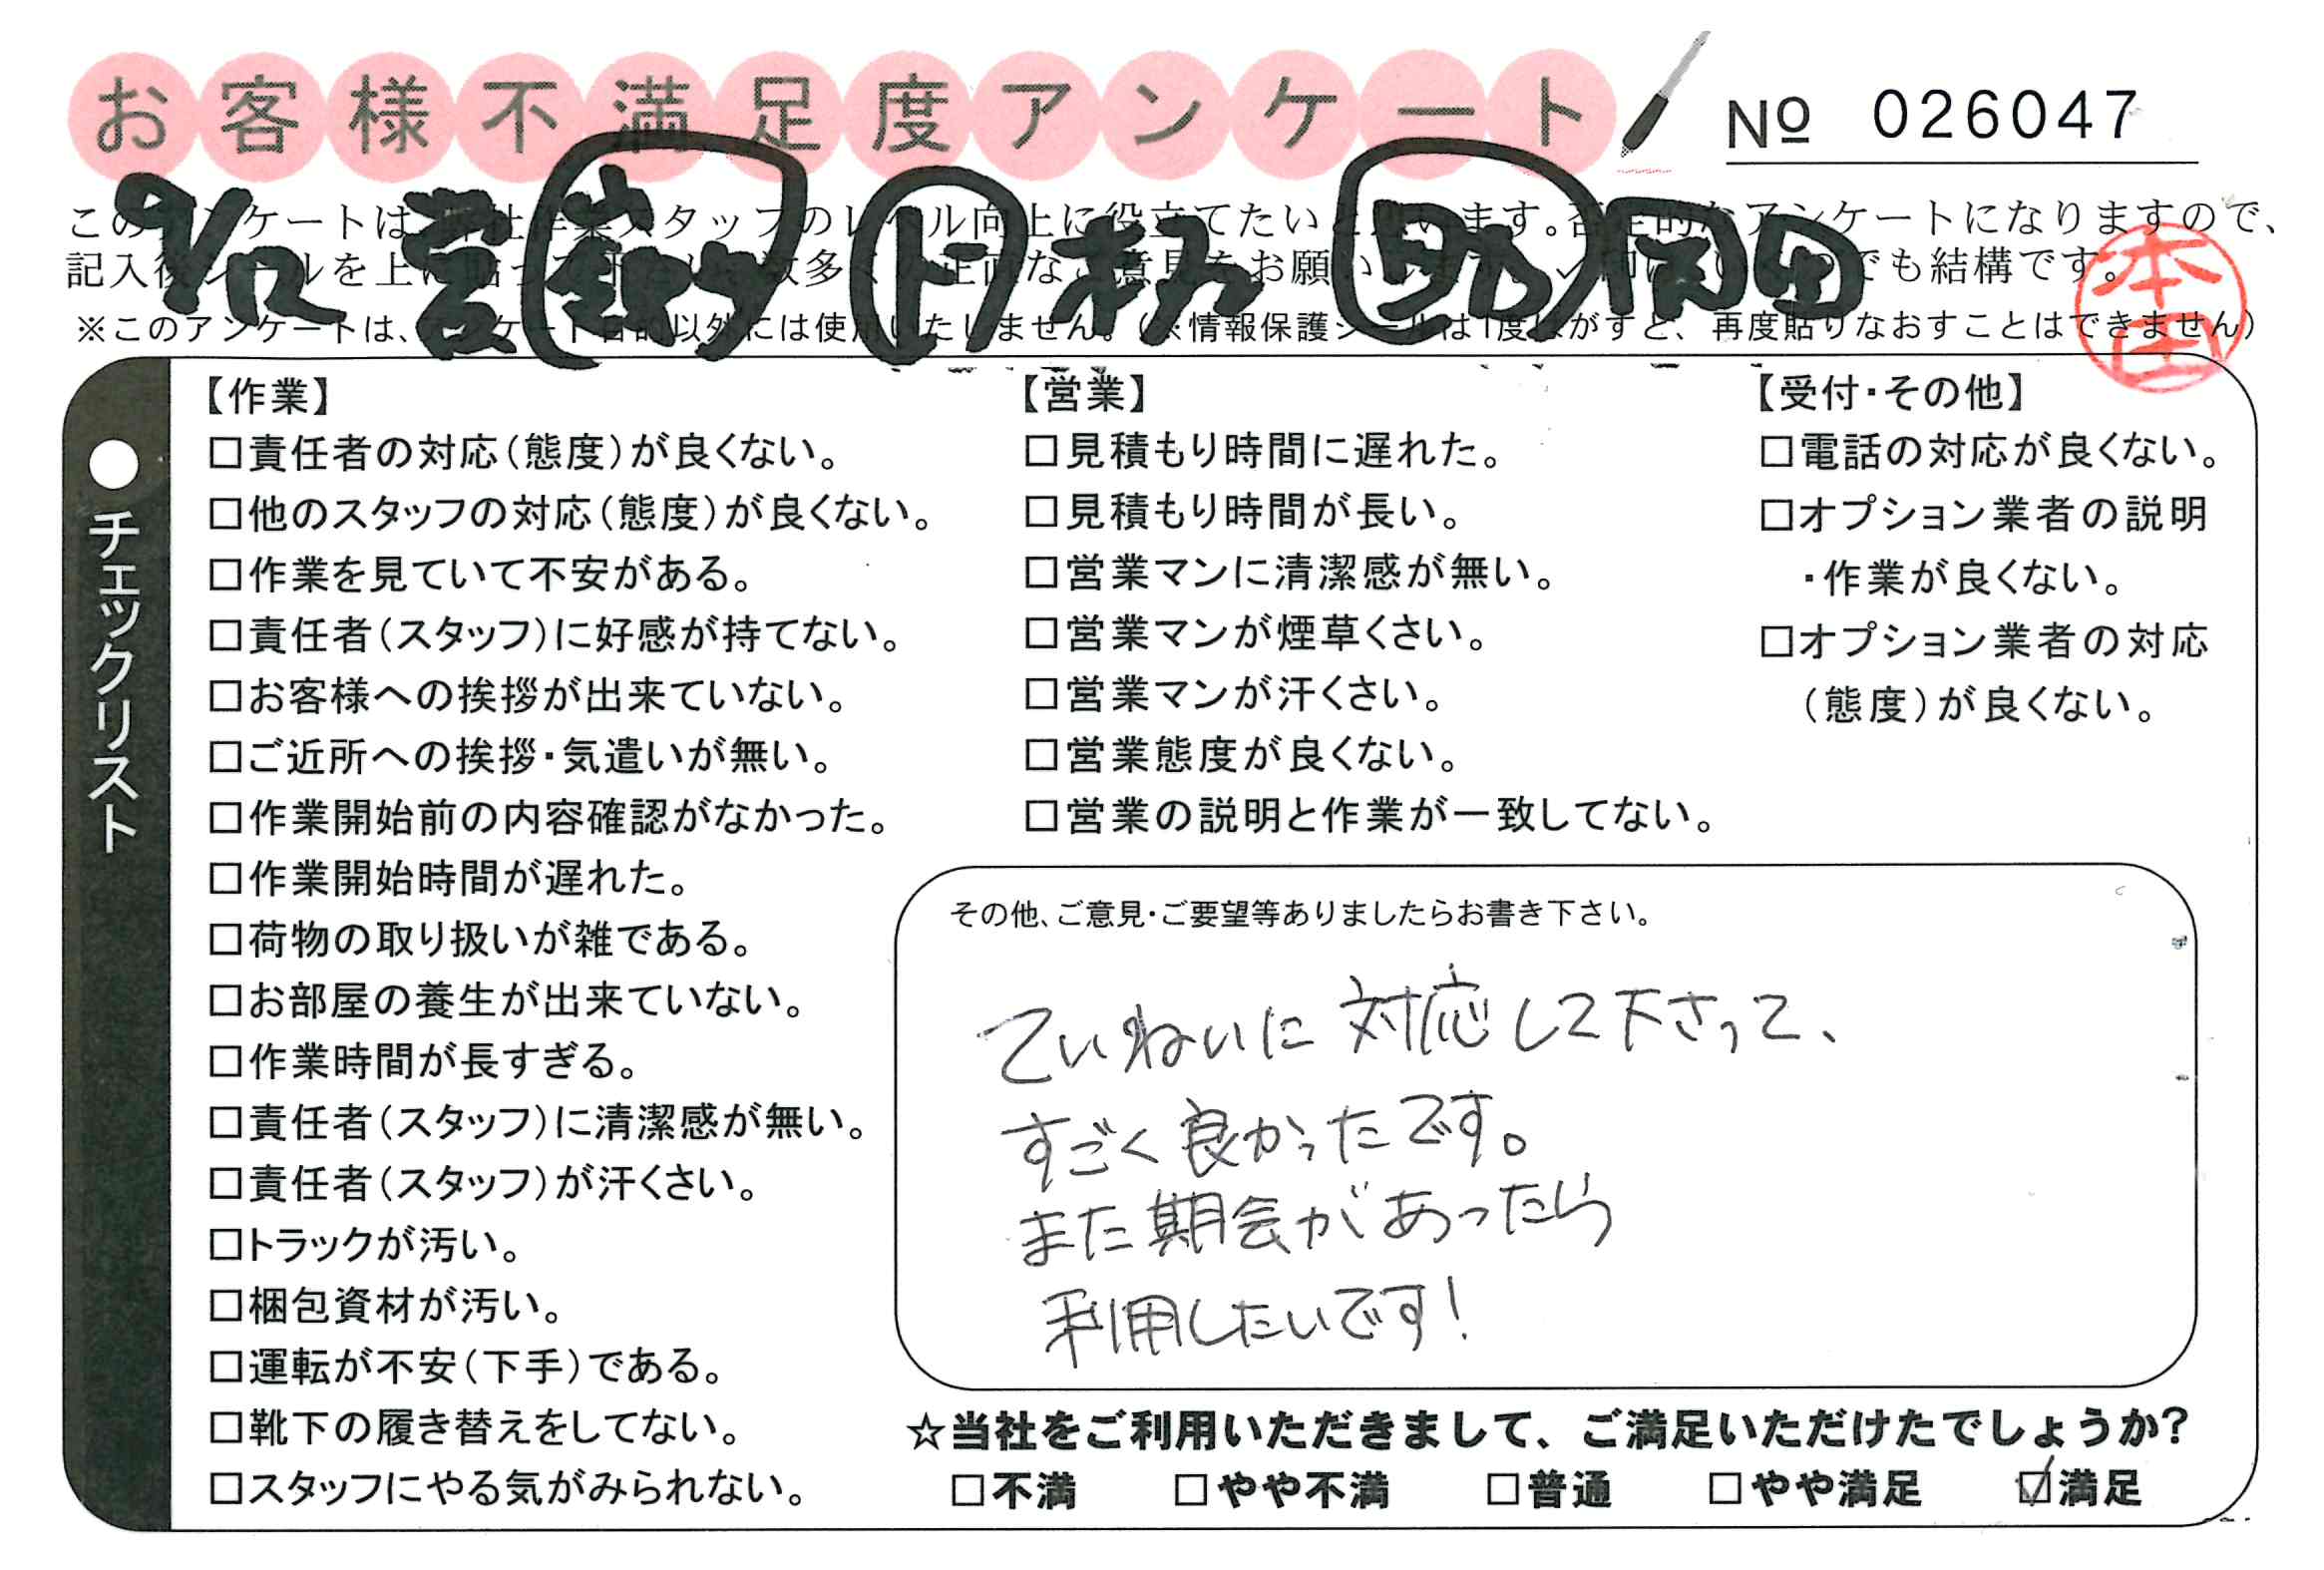 お客様不満足度アンケート
№ 026047
9/12 営 ト 助 岡田
このアンケートは タッフのレベル向上に役立てたいと思います。否定的なアンケートになりますので、
記入後シールを上に貼って 数多く 正直なご意見をお願い でも結構です。
本田
※このアンケートは、アンケート目的以外には使用いたしません。(※情報保護シールは1度はがすと、再度貼りなおすことはできません)
●チェックリスト
【作業】
□責任者の対応(態度)が良くない。
□他のスタッフの対応(態度)が良くない。
□作業を見ていて不安がある。
□責任者(スタッフ)に好感が持てない。
□お客様への挨拶が出来ていない。
□ご近所への挨拶・気遣いが無い。
□作業開始前の内容確認がなかった。
□作業開始時間が遅れた。
□荷物の取り扱いが雑である。
□お部屋の養生が出来ていない。
□作業時間が長すぎる。
□責任者(スタッフ)に清潔感が無い。
□責任者(スタッフ)が汗くさい。
□トラックが汚い。
□梱包資材が汚い。
□運転が不安(下手)である。
□靴下の履き替えをしてない。
□スタッフにやる気がみられない。
【営業】
□見積もり時間に遅れた。
□見積もり時間が長い。
□営業マンに清潔感が無い。
□営業マンが煙草くさい。
□営業マンが汗くさい。
□営業態度が良くない。
□営業の説明と作業が一致してない。
【受付・その他】
□電話の対応が良くない。
□オプション業者の説明
・作業が良くない。
□オプション業者の対応
(態度)が良くない。
その他、ご意見・ご要望等ありましたらお書き下さい。
ていねいに対応して下さって、
すごく良かったです。
また期会があったら
利用したいです!
☆当社をご利用いただきまして、ご満足いただけたでしょうか?
□不満 □やや不満 □普通 □やや満足 ☑満足